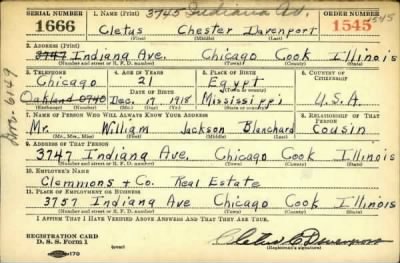 SERIAL NUMBER 1. NAME (Print) 3745 Indiana Av. ORDER NUMBER
1666 Cletus Chester Davenport 1545 1545
(First) (Middle) (Last)
2. ADDRESS (Print)
3747 Indiana Ave. Chicago Cook Illinois
(Number and street or R. F. D. number) (Town) (County) (State)
3. TELEPHONE 4. AGE IN YEARS 5. PLACE OF BIRTH 6. COUNTRY OF CITIZENSHIP
Chicago 21 Egypt
Oakland 0940 DATE OF BIRTH (Town or county)
Dec. 17, 1918 Mississippi U.S.A.
(Exchange) (Number) (Mo.) (Day) (Yr.) (State or country)
7. NAME OF PERSON WHO WILL ALWAYS KNOW YOUR ADDRESS 8. RELATIONSHIP OF THAT PERSON
Mr. William Jackson Blanchard Cousin
(Mr., Mrs., Miss) (First) (Middle) (Last)
9. ADDRESS OF THAT PERSON
3747 Indiana Ave. Chicago Cook Illinois
(Number and street or R. F. D. number) (Town) (County) (State)
10. EMPLOYER'S NAME
Clemmons + Co. Real Estate
11. PLACE OF EMPLOYMENT OR BUSINESS
3757 Indiana Ave Chicago Cook Illinois
(Number and street or R. F. D. number) (Town) (County) (State)
I AFFIRM THAT I HAVE VERIFIED ABOVE ANSWERS AND THAT THEY ARE TRUE.
REGISTRATION CARD
D. S. S. Form 1 (over) Cletus C Davenport
(Registrant's signature)